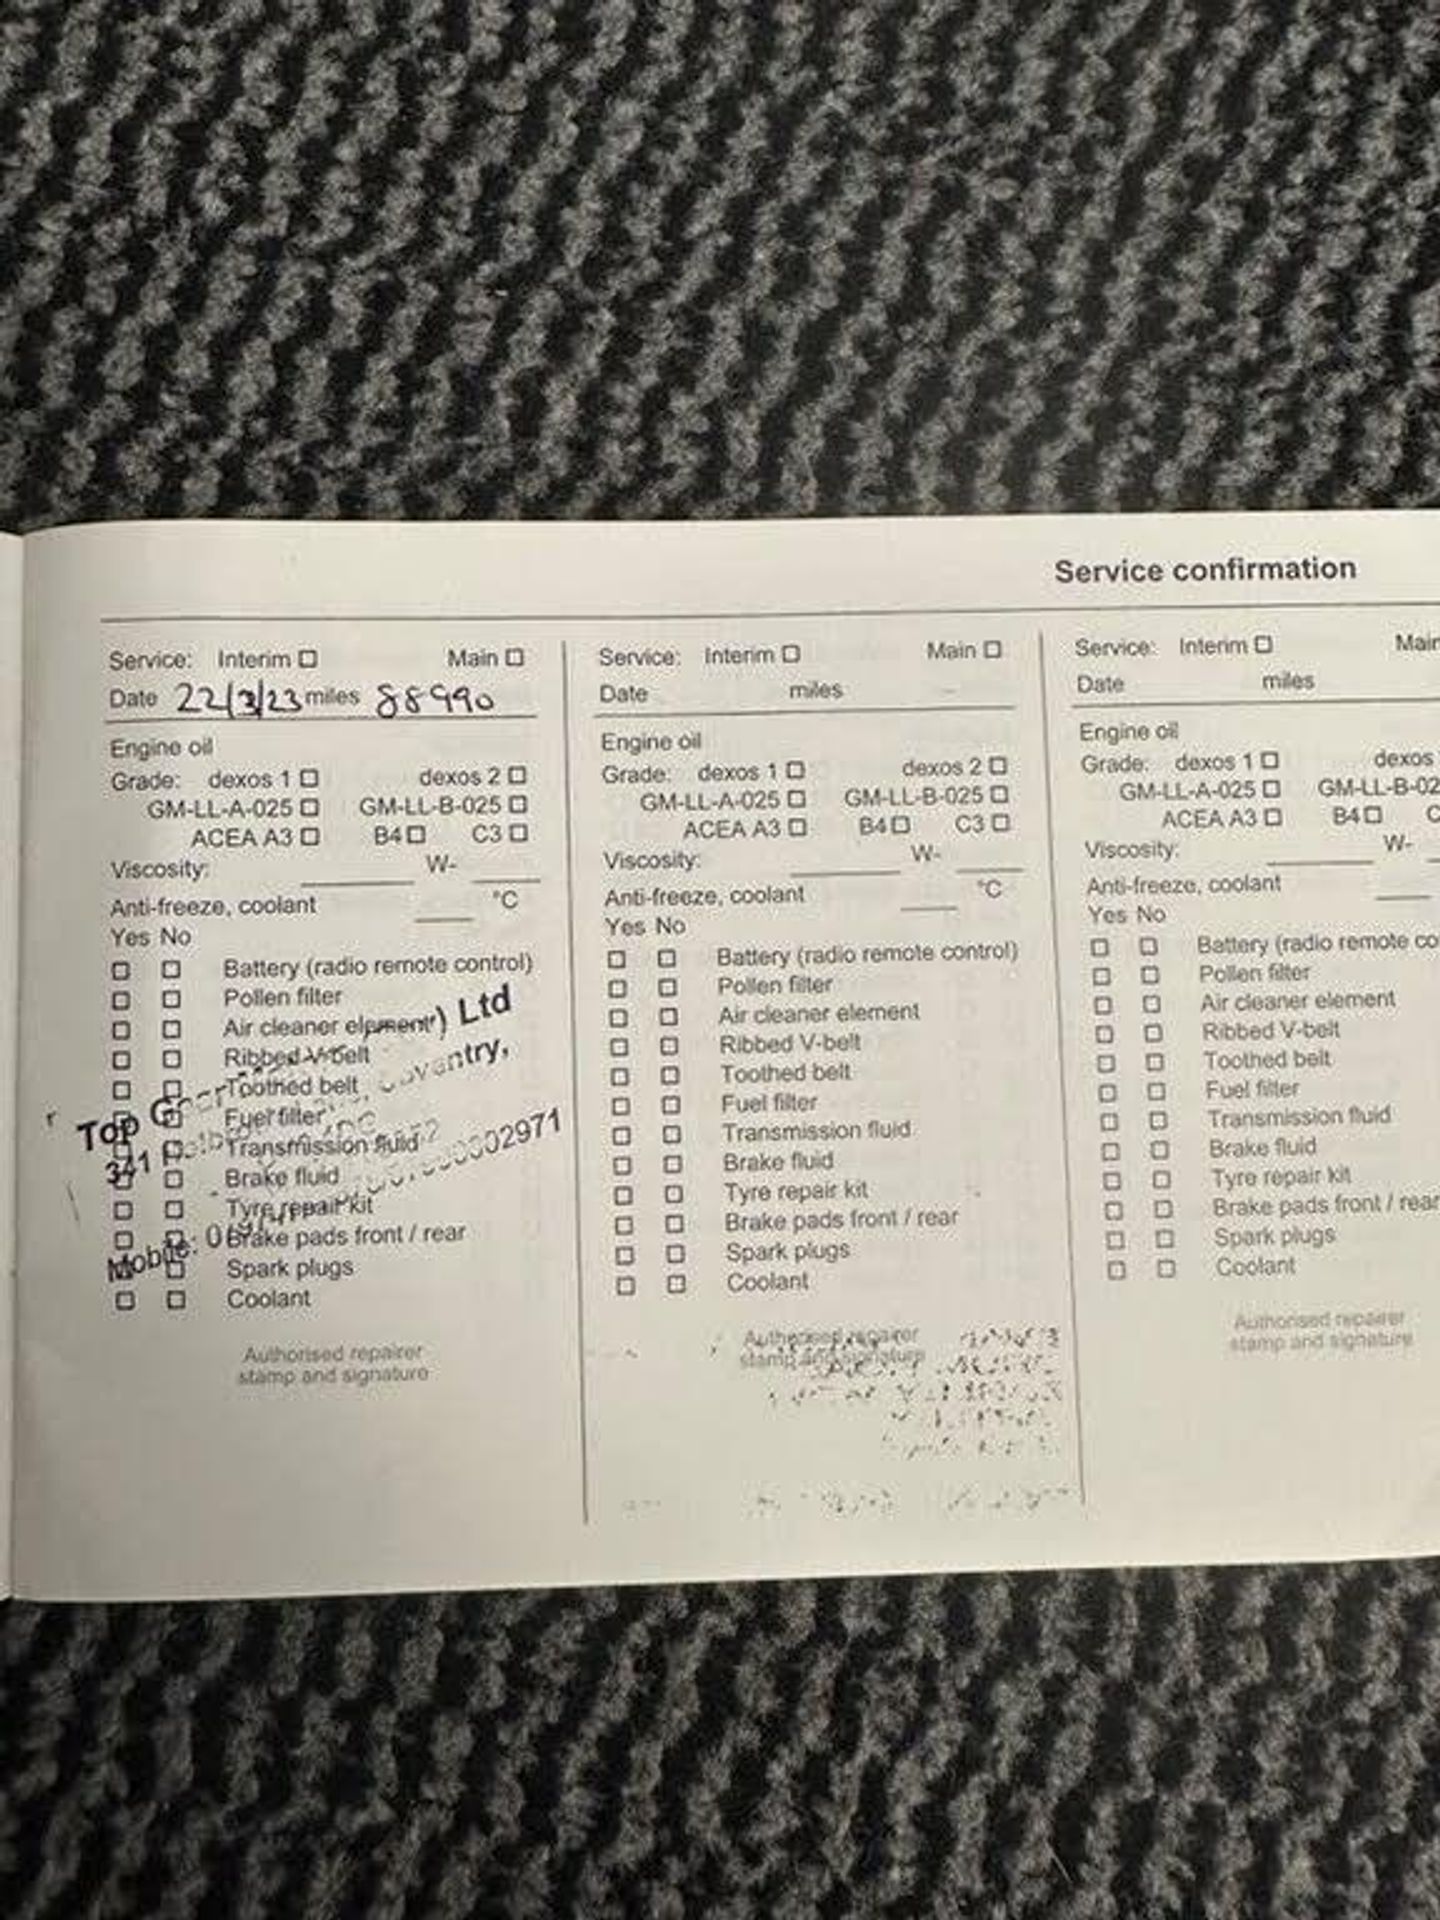 Service confirmation
Service: Interim Main
Date 22/3/23 miles 88990
Engine oil
Grade: dexos 1 dexos 2
GM-LL-A-025 GM-LL-B-025
ACEA A3 B4 C3
Viscosity: W-
Anti-freeze, coolant °C
Yes No
Battery (radio remote control)
Pollen filter
Air cleaner element
Ribbed V-belt
Toothed belt
Fuel filter
Transmission fluid
Brake fluid
Tyre repair kit
Brake pads front / rear
Spark plugs
Coolant
Top Ltd
341
Mobile:
Authorised repairer
stamp and signature
Service: Interim Main
Date miles
Engine oil
Grade: dexos 1 dexos 2
GM-LL-A-025 GM-LL-B-025
ACEA A3 B4 C3
Viscosity: W-
Anti-freeze, coolant °C
Yes No
Battery (radio remote control)
Pollen filter
Air cleaner element
Ribbed V-belt
Toothed belt
Fuel filter
Transmission fluid
Brake fluid
Tyre repair kit
Brake pads front / rear
Spark plugs
Coolant
Authorised repairer
stamp and signature
Service: Interim Main
Date miles
Engine oil
Grade: dexos 1 dexos
GM-LL-A-025 GM-LL-B-02
ACEA A3 B4 C
Viscosity: W-
Anti-freeze, coolant
Yes No
Battery (radio remote co
Pollen filter
Air cleaner element
Ribbed V-belt
Toothed belt
Fuel filter
Transmission fluid
Brake fluid
Tyre repair kit
Brake pads front / rear
Spark plugs
Coolant
Authorised repairer
stamp and signature